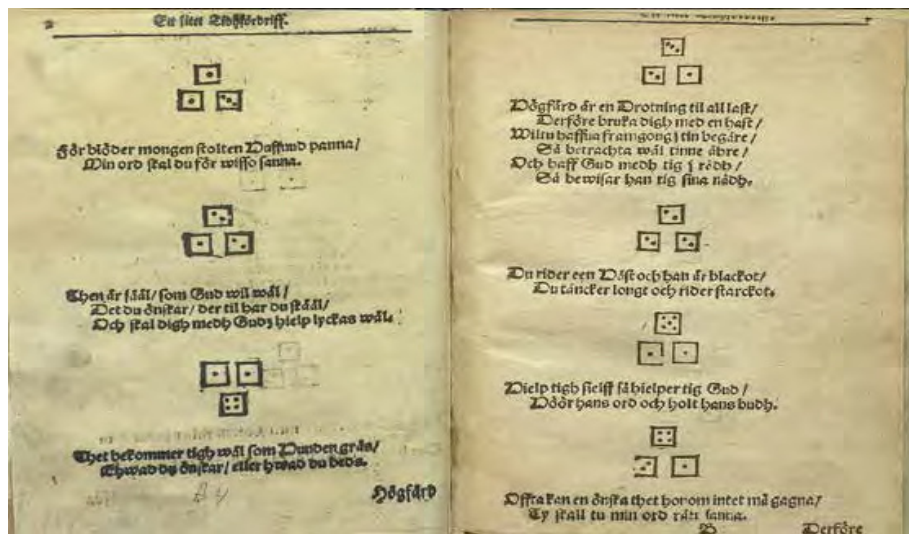 Ett litet Tidhfördriff.
För blöder mongen stolten Haffund panna/
Min ord skal du för wisso sanna.
Then är sääl/ som Gud wil wäl/
Det du önskar/ der til har du skääl/
Och skal digh medh Gudz hielp lyckas wäl.
Thet bekommer tigh wäl som Hunden gräs/
Ehwad du önskar/ eller hwad du beds.
Högfärd
Högfärd är en Drotning til all last/
Derföre bruka digh med en hast/
Wiltu haffua framgong j tin begäre/
Så betrachta wäl tinne ähre/
Och haff Gud medh tig j rådh/
Så bewisar han tig sina nådh.
Du rider een Häst och han är blackot/
Du täncker longt och rider starckot.
Hielp tigh sielff så hielper tig Gud/
Höör hans ord och holt hans budh.
Offta kan en önska thet honom intet må gagna/
Ty skall tu min ord rätt sanna.
B
Derföre